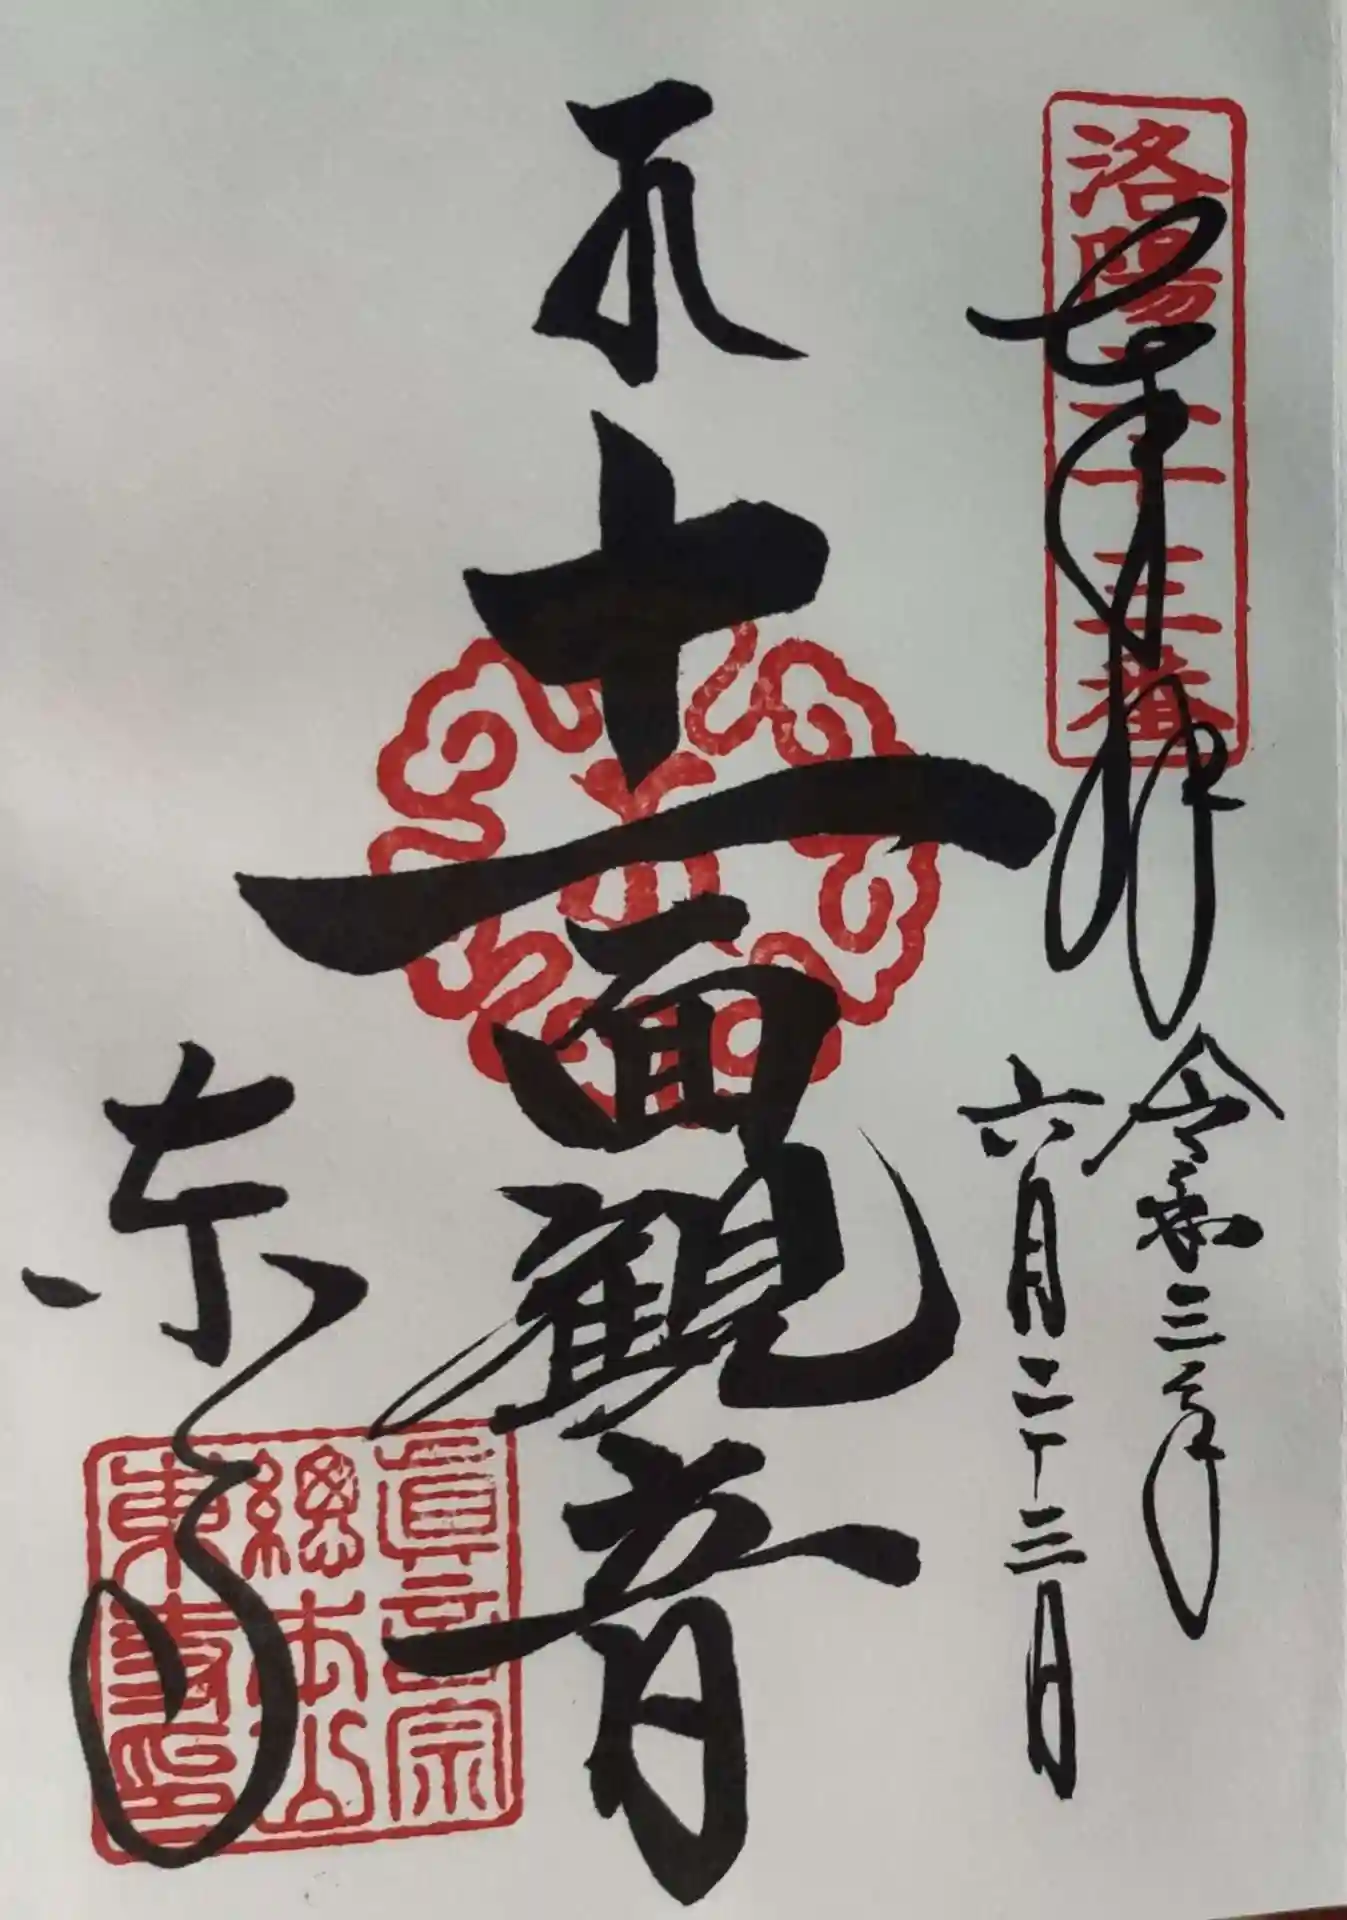 洛陽二十三番
奉拝
令和三年
六月二十三日
十一面観音
東寺
眞言宗
總本山
東寺印